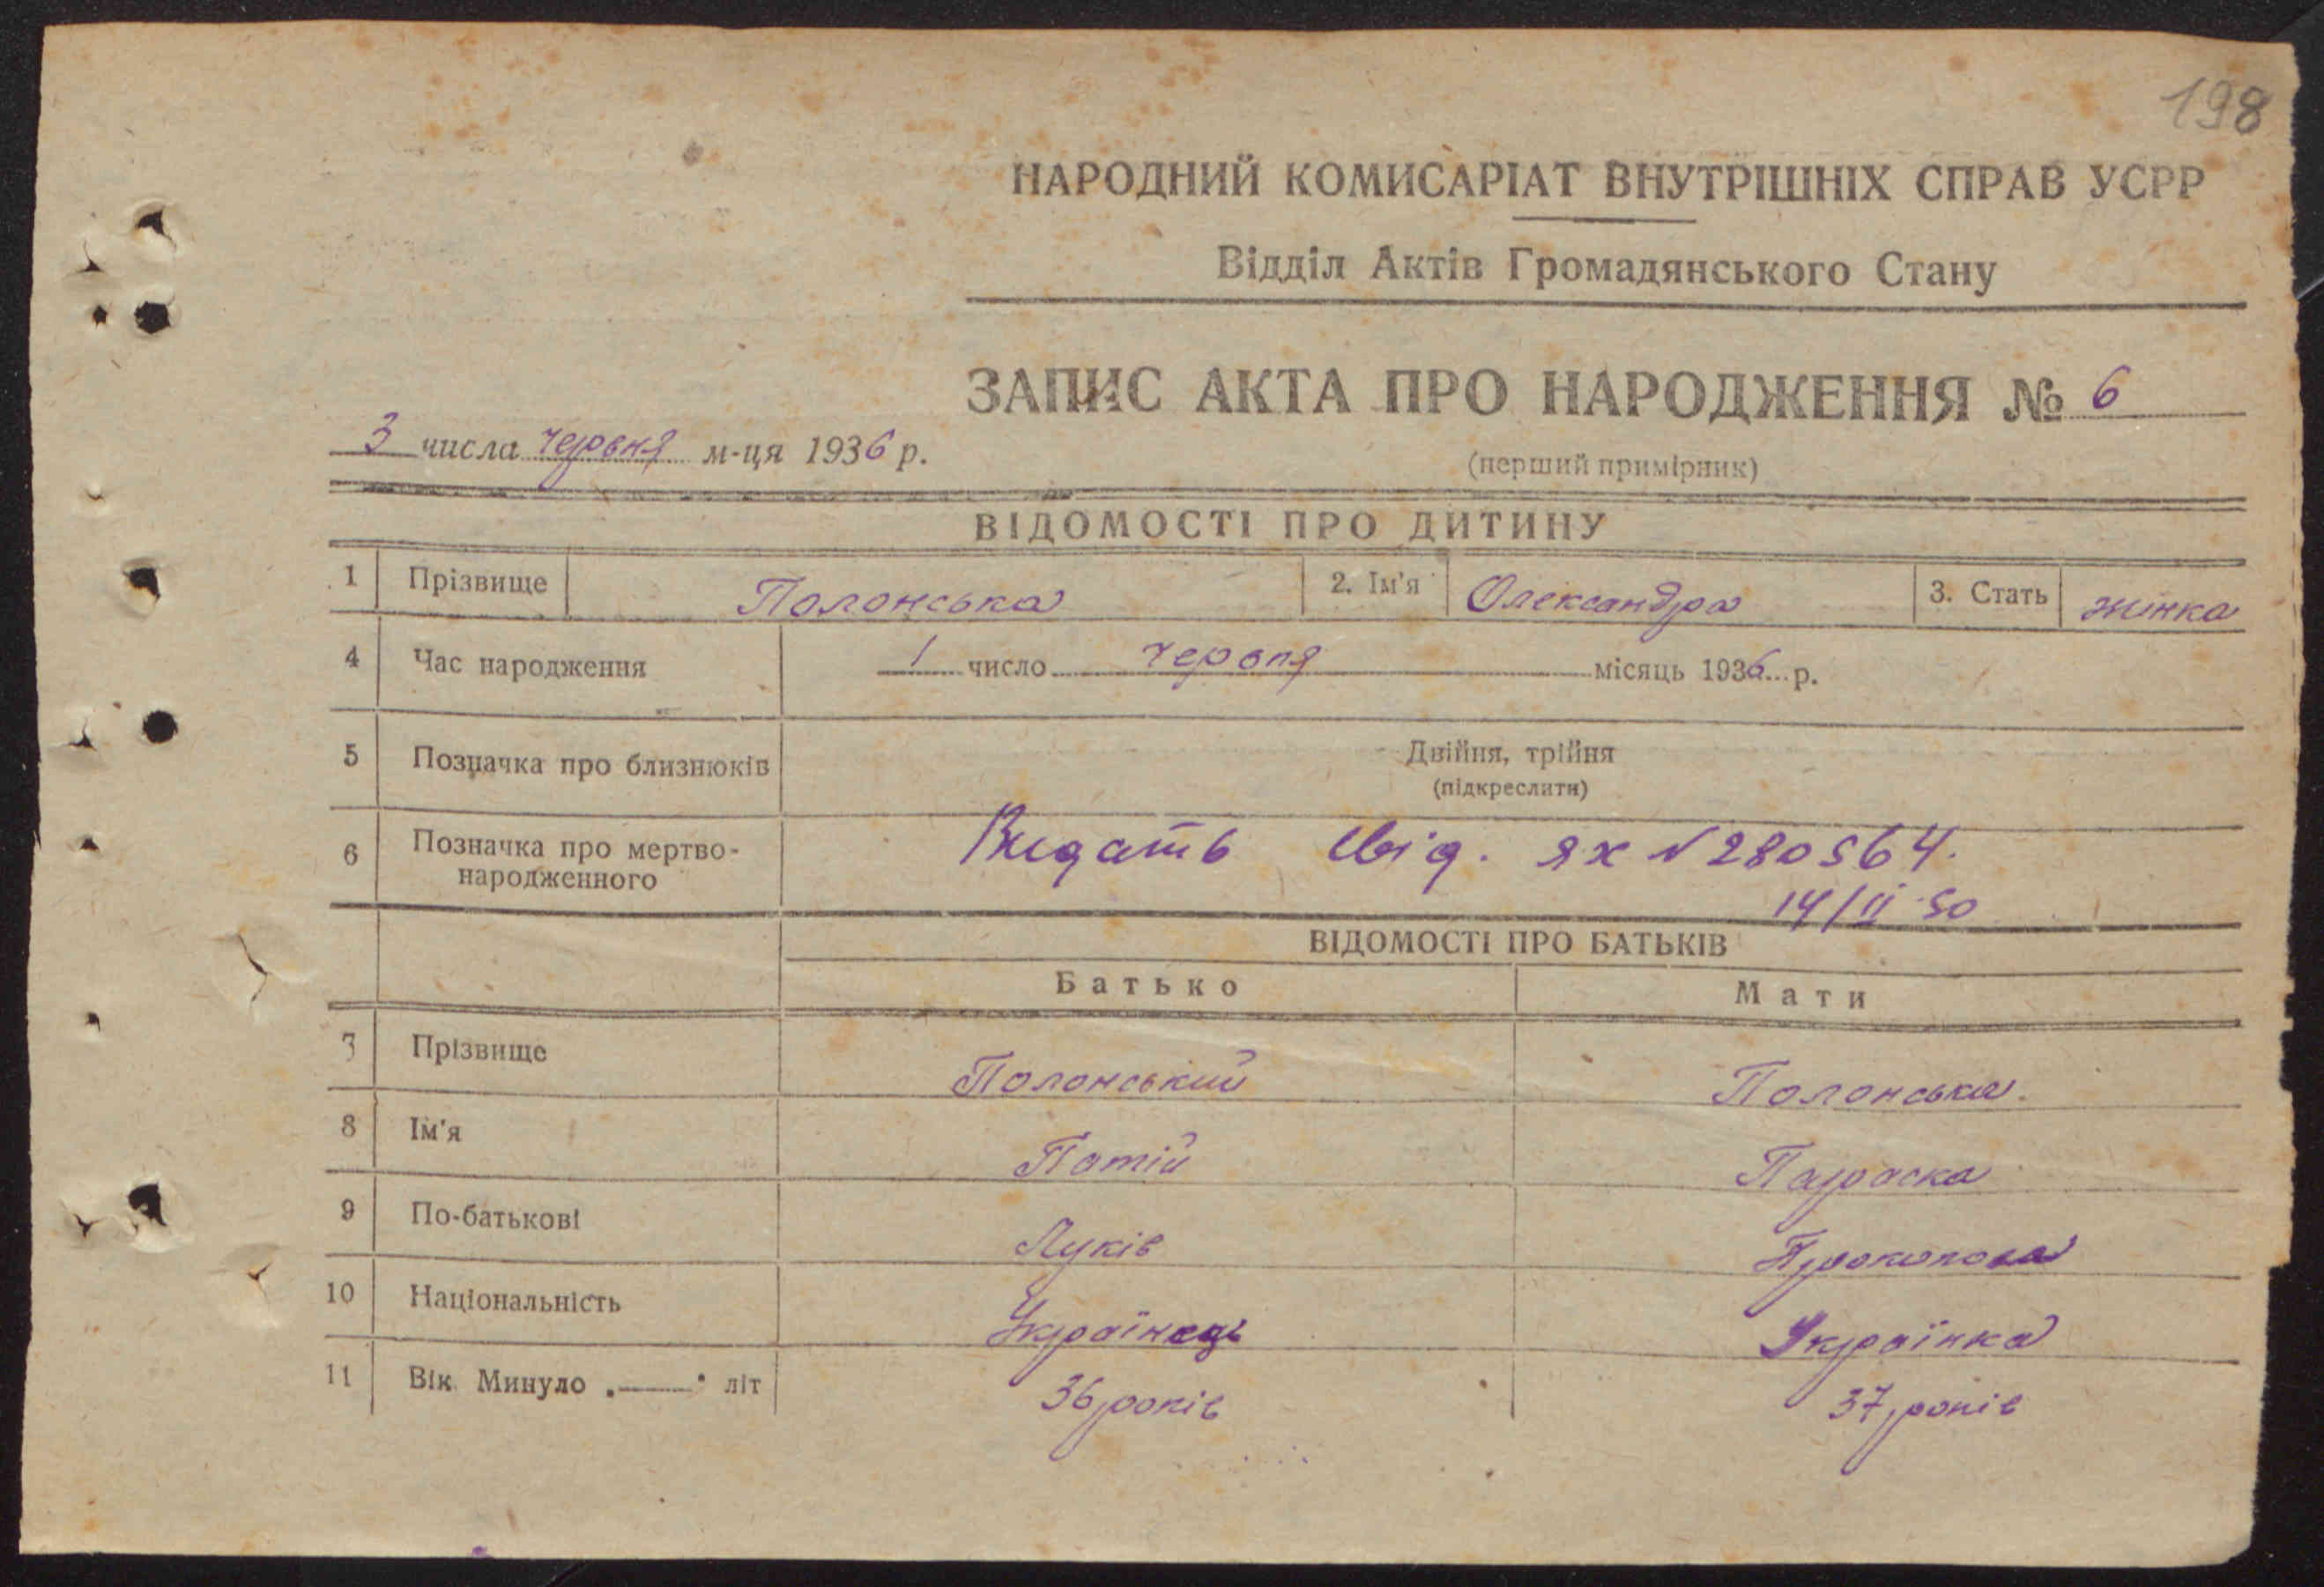 198
НАРОДНИЙ КОМИСАРІАТ ВНУТРІШНІХ СПРАВ УСРР
Відділ Актів Громадянського Стану
ЗАПИС АКТА ПРО НАРОДЖЕННЯ № 6
3 числа червня м-ця 1936 р.
(перший примірник)
ВІДОМОСТІ ПРО ДИТИНУ
1 Прізвище Полонська 2. Ім'я Олександра 3. Стать жінка
4 Час народження 1 число червня місяць 1936 р.
5 Позначка про близнюків Двійня, трійня
(підкреслити)
6 Позначка про мертво-
народженного
Видать свід. ЯХ N 280564.
14/II 50
ВІДОМОСТІ ПРО БАТЬКІВ
Батько Мати
7 Прізвище Полонський Полонська.
8 Ім'я Параска
9 По-батькові Луків Прокопова
10 Національність Українець Українка
11 Вік. Минуло „——" літ 36 років 37 років